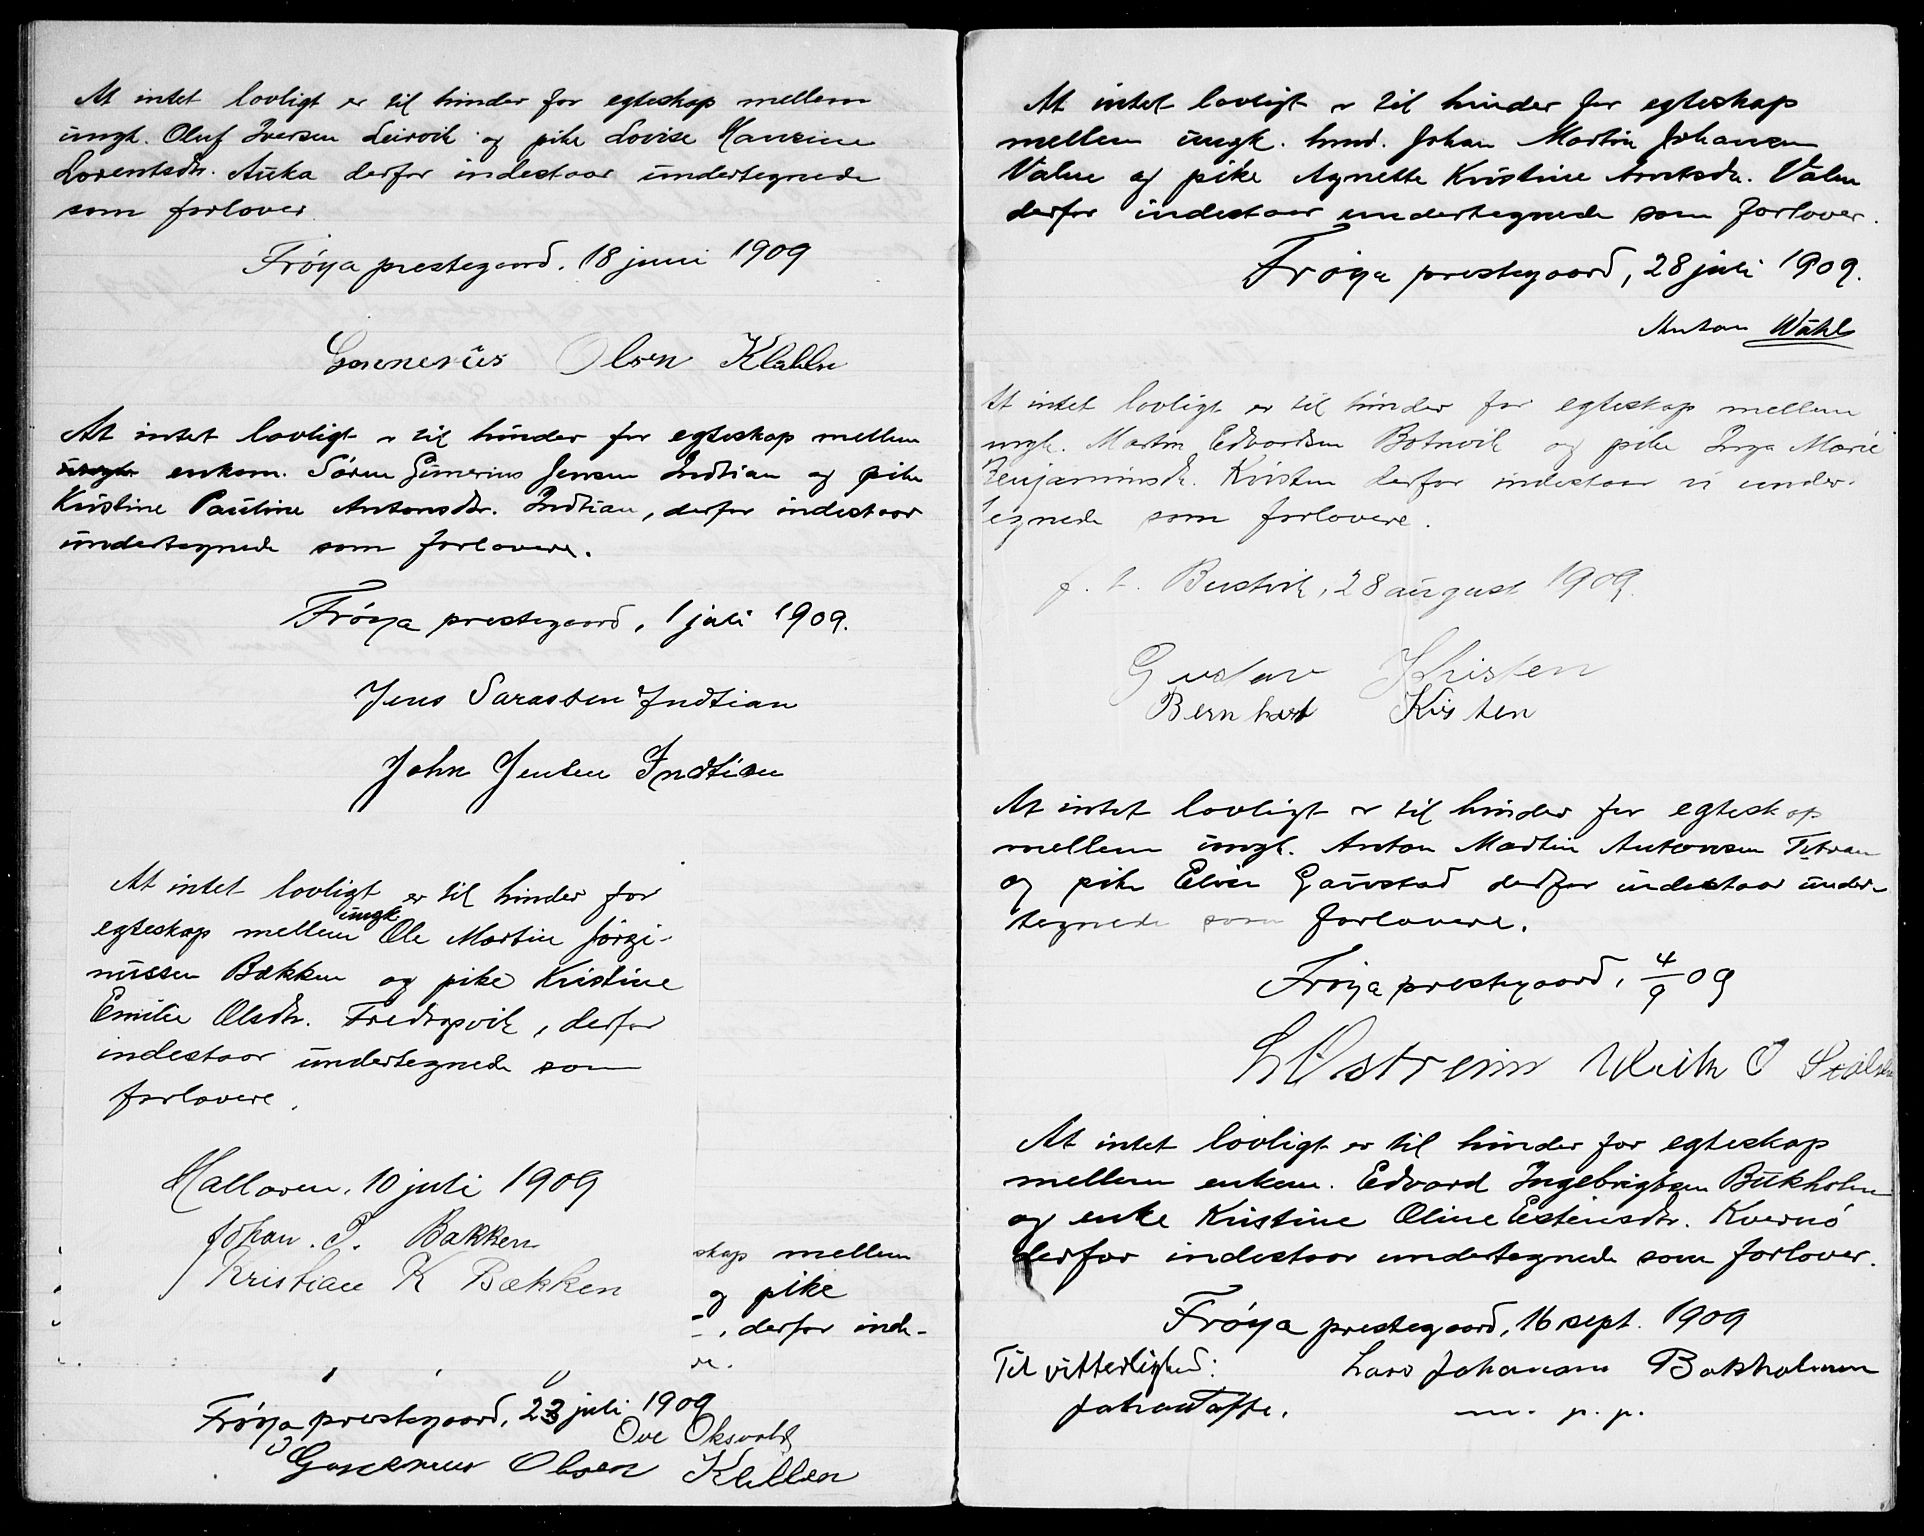 At intet lovligt er til hinder for egteskap mellem
ungk. Oluf Iversen Leirvik og pike Lovise Hansine
Lorentsdtr. Auka derfor indestaar undertegnede
som forlover.
Frøya prestegaard, 18 juni 1909
Olsen
At intet lovligt er til hinder for egteskap mellem
ungk. enkem. Søren Gunerius Jensen Indtian og pike
Kristine Pauline Antonsdtr. Indtian, derfor indestaar
undertegnede som forlovere.
Frøya prestegaard, 1 juli 1909.
Jens Indtian
John Jensen Indtian
At intet lovligt er til hinder for
egteskap mellem ungk. Ole Martin Jørgi-
nussen Bekken og pike Kristine
Emilie Olsdtr. Fredagsvik, derfor
indestaar undertegnede som
forlovere.
Halloren, 10 juli 1909
Johan. P. Bakken
Kristian K Bækken
skap mellem
g pike
, derfor inde-
re.
Frøya prestegaard, 23 juli 1909
Ove Oksvold
Olsen
At intet lovligt er til hinder for egteskap
mellem ungk. Johan Martin Johansen
Valen og pike Agnette Kristine Arntsdtr. Valen
derfor indestaar undertegnede som forlover.
Frøya prestegaard, 28 juli 1909.
Anton Wåhl
At intet lovligt er til hinder for egteskap mellem
ungk. Martin Edvardsen Botnvik og pike Inga Marie
Benjaminsdtr. Kvisten derfor indestaar vi under-
tegnede som forlovere.
p. t. Bustvik, 28 august 1909.
Gustav Khisten
Bernhart Kvisten
At intet lovligt er til hinder for egteskap
mellem ungk. Anton Martin Antonsen Titran
og pike Elise Gaustad derfor indestaar under-
tegnede som forlovere.
Frøya prestegaard, 4/9 09
L Østreim
At intet lovligt er til hinder for egteskap
mellem enkem. Edvard Ingebrigtsen Bukholm
og enke Kristine Oline Estensdtr. Kvernø
derfor indestaar undertegnede som forlover.
Frøya prestegaard, 16 sept. 1909
Til vitterlighed: Lars Johansen Bokholmen
Johan Tofte. m. p. p.